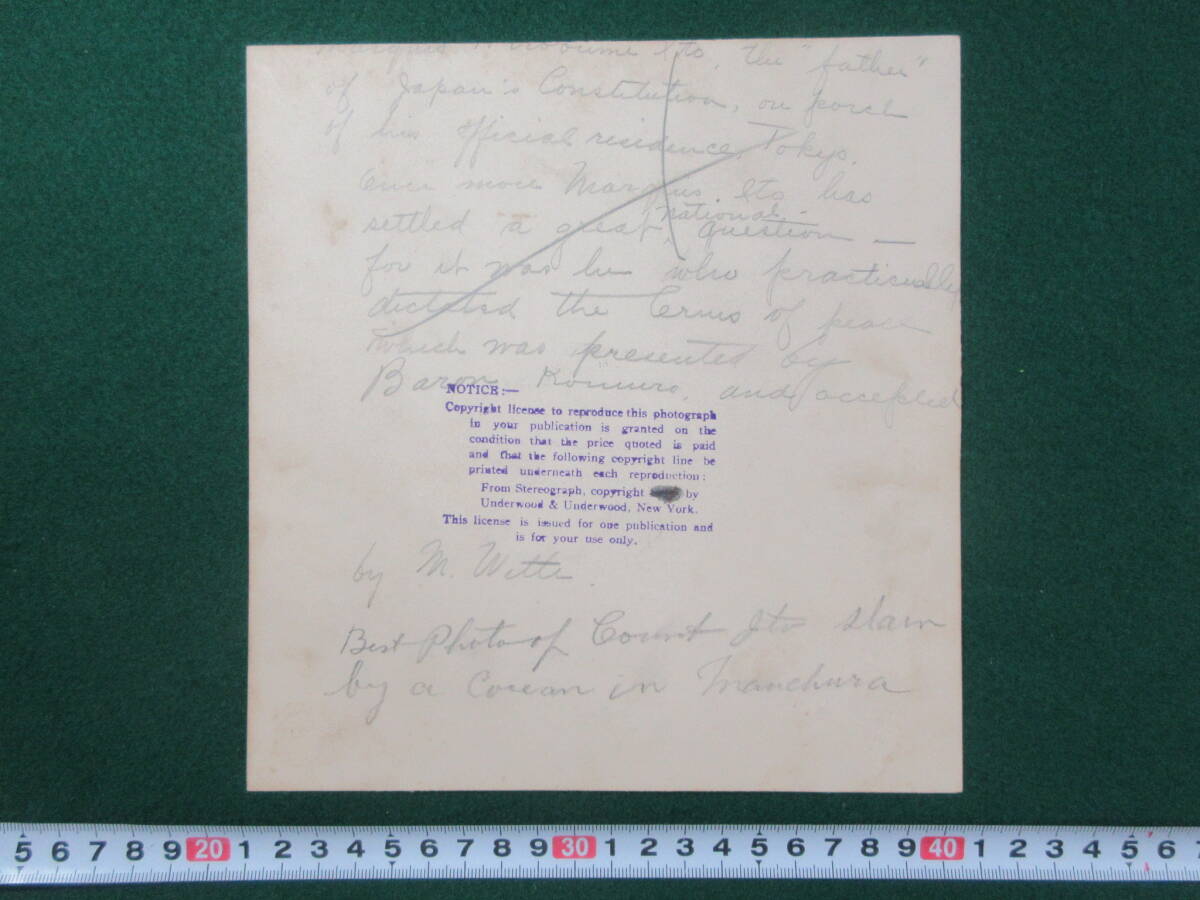 Marquis Ito, the "father"
of Japan's Constitution, on porch
of his official residence, Tokyo.
Once more Marquis Ito has
national
settled a great question —
for it was he who practically
dictated the terms of peace
which was presented by
Baron Komuro, and accepted
NOTICE:—
Copyright license to reproduce this photograph
in your publication is granted on the
condition that the price quoted is paid
and that the following copyright line be
printed underneath each reproduction:
From Stereograph, copyright by
Underwood & Underwood, New York.
This license is issued for one publication and
is for your use only.
by M. Witte.
Best Photo of Count Ito slain
by a Corean in Manchura
5 6 7 8 9 20 1 2 3 4 5 6 7 8 9 30 1 2 3 4 5 6 7 8 9 40 1 2 3 4 5 6 7